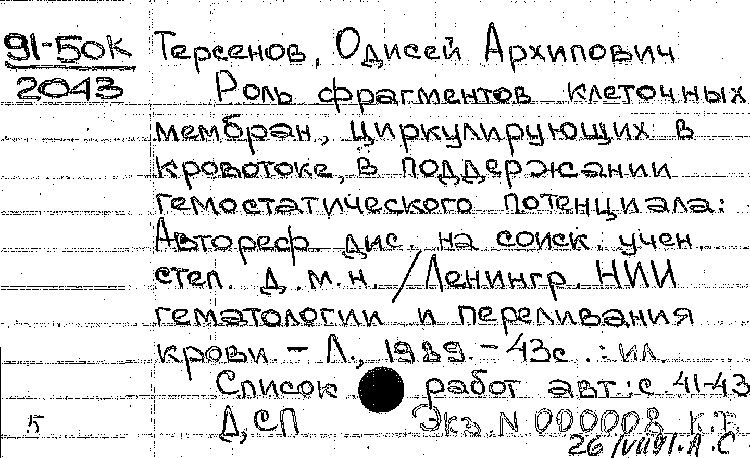 91-50к Терсенов, Одисей Архипович
2043 Роль фрагментов клеточных
мембран, циркулирующих в
кровотоке, в поддержании
гемостатического потенциала:
Автореф. дис. на соиск. учен.
степ. д.м.н. /Ленингр. НИИ
гематологии и переливания
крови. - Л., 1989. - 43с.: ил.
Список работ авт.: с. 41-43
15 Д,СП Экз. N 000008 к.т.
26/VII91.А.С